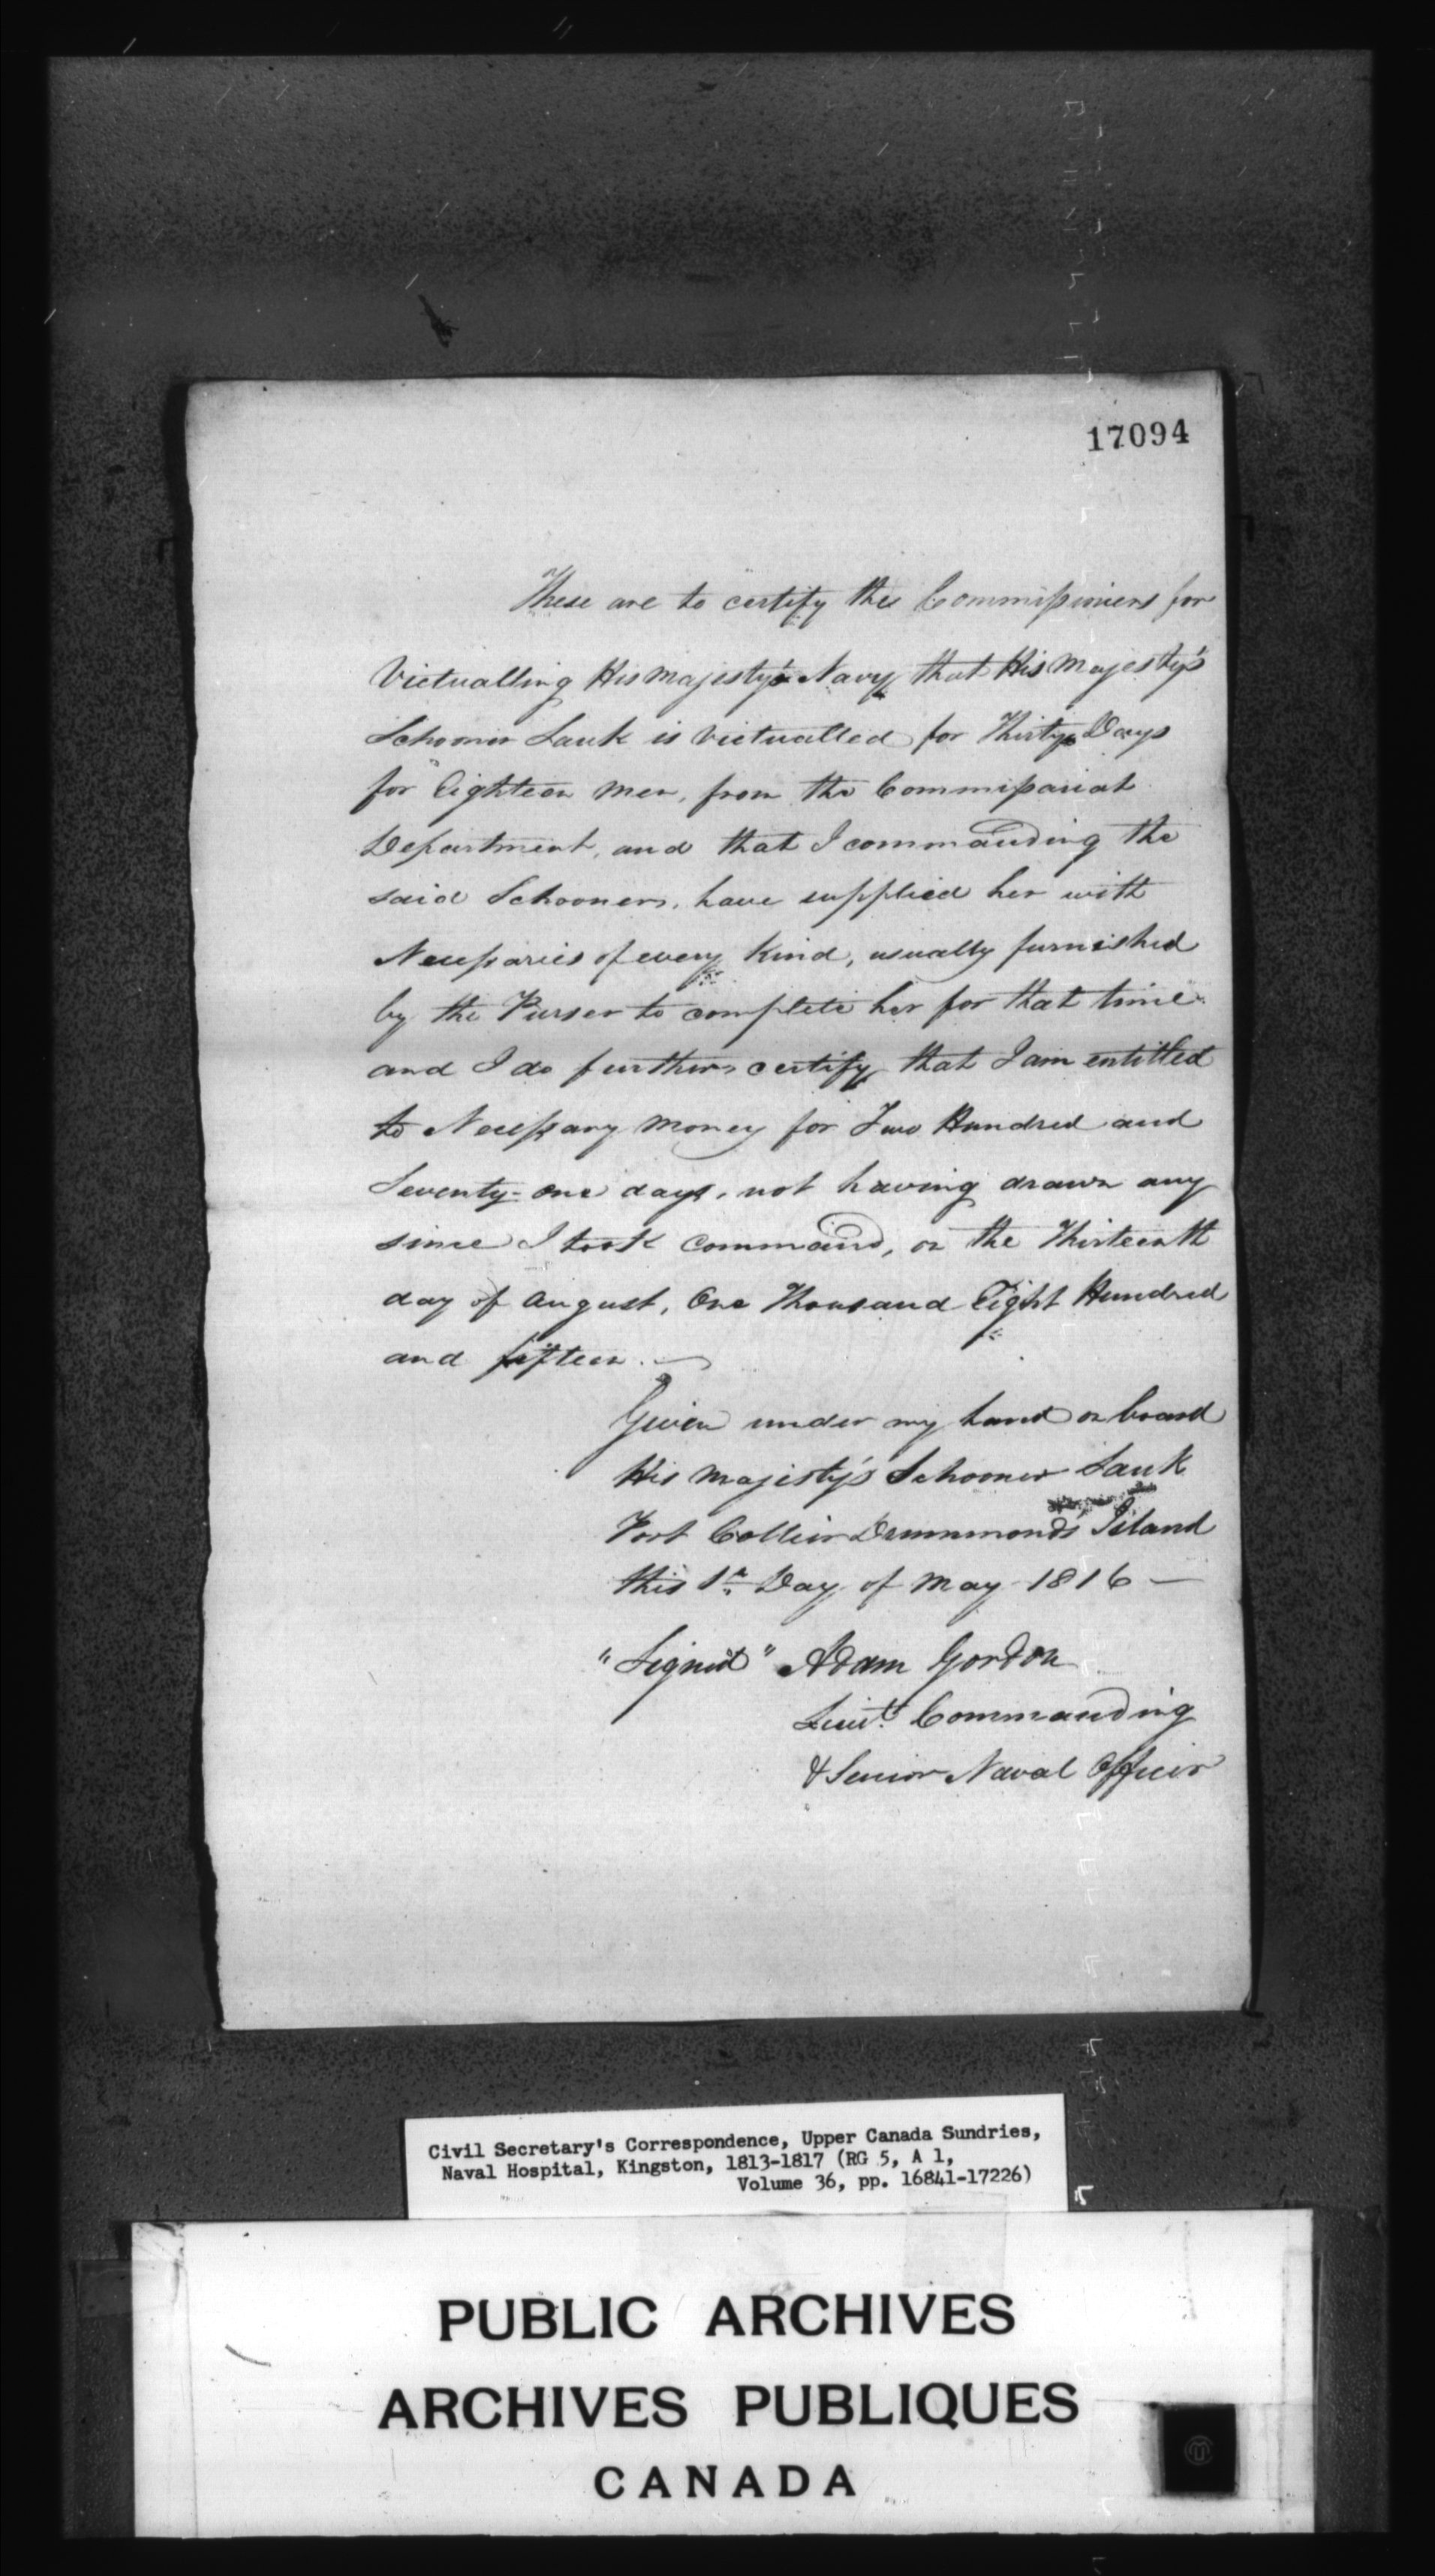 17094
These are to certify the Commissioners for
Victualling His Majesty's Navy that His Majesty's
Schooner Sauk is Victualled for Thirty Days
for Eighteen Men, from the Commissariat
Department, and that I commanding the
said Schooner, have supplied her with
Necessaries of every Kind, usually furnished
by the Purser to complete her for that time
and I do further certify that I am entitled
to Necessary Money for Two Hundred and
Seventy-One days, not having drawn any
since I took Command, on the Thirteenth
day of August, One Thousand Eight Hundred
and fifteen.—
Given under my hand on board
His Majesty's Schooner Sauk
Port Collier Drummonds Island
this 1st Day of May 1816 —
"Signed" Adam Gordon
Lieut. Commanding
& Senior Naval Officer
Civil Secretary's Correspondence, Upper Canada Sundries,
Naval Hospital, Kingston, 1813-1817 (RG 5, A 1,
Volume 36, pp. 16841-17226)
PUBLIC ARCHIVES
ARCHIVES PUBLIQUES
CANADA